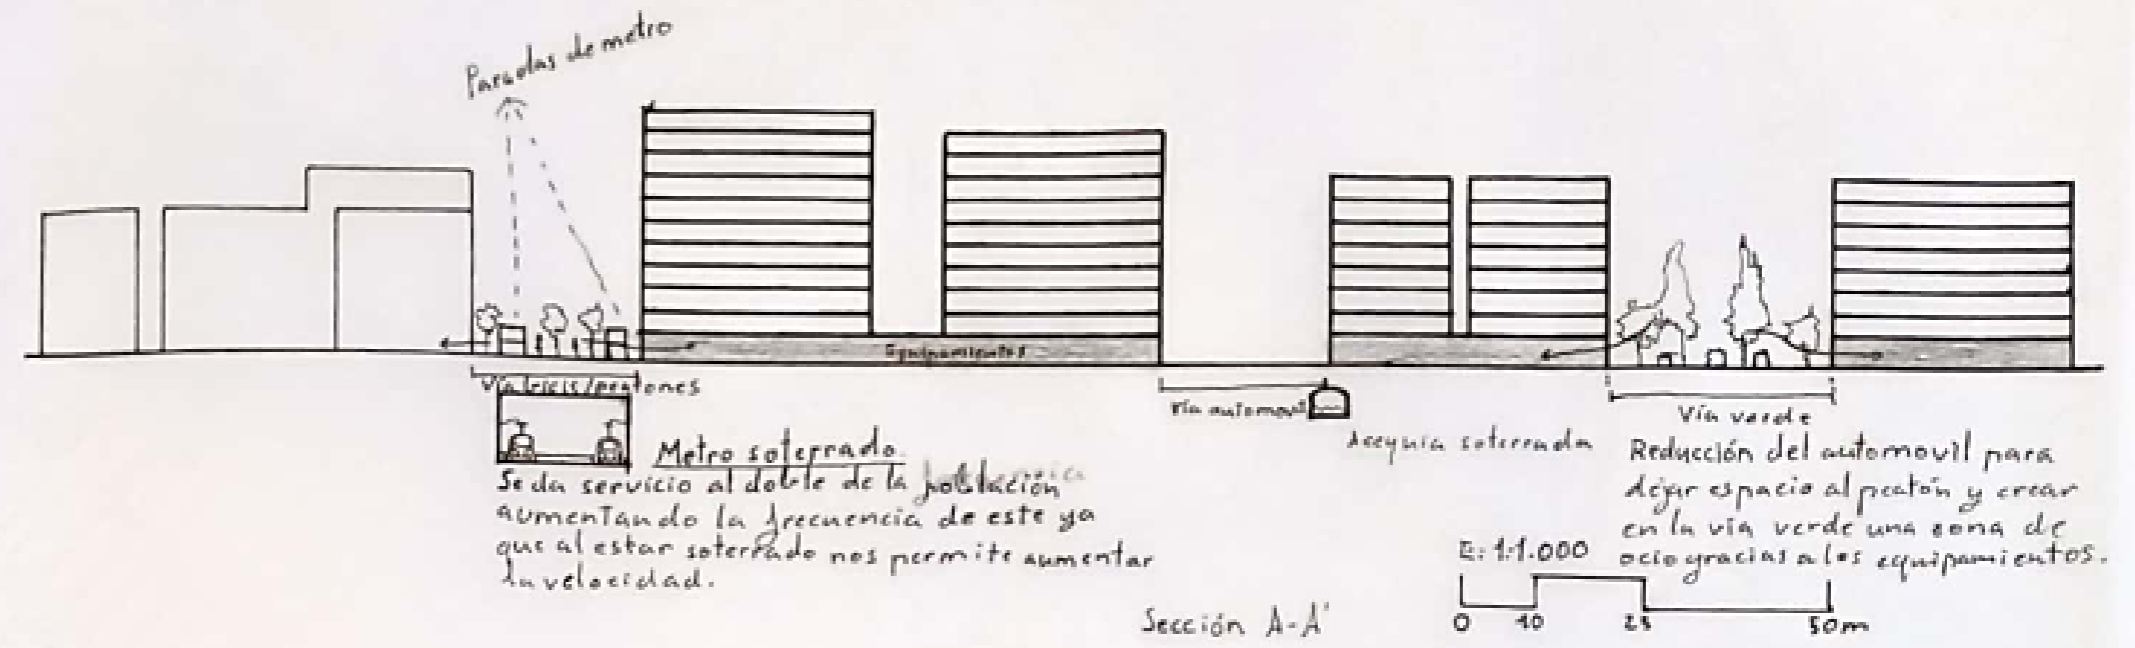 Paradas de metro
Equipamientos
Vía bicis/peatones
Vía automovil
Vía verde
Acequia soterrada
Metro soterrado.
Se da servicio al doble de la población
aumentando la frecuencia de este ya
que al estar soterrado nos permite aumentar
la velocidad.
Reducción del automovil para
dejar espacio al peatón y crear
en la vía verde una zona de
ocio gracias a los equipamientos.
E: 1:1.000
0 10 25 50m
Sección A-A'